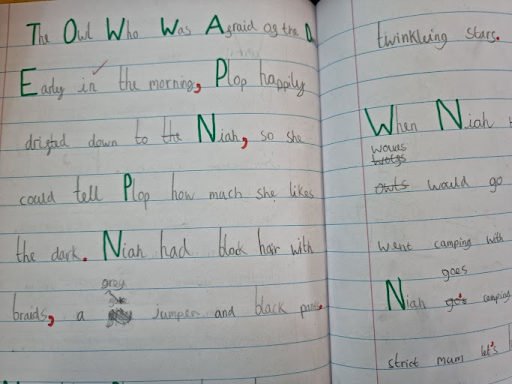 The Owl Who Was Afraid og the D
Early in the morning, Plop happily
drigted down to the Niah, so she
could tell Plop how mach she likes
the dark. Niah had black hair with
gray
braids, a jumper and black pants.
twinkleing stars.
When Niah
owts would go
went camping with
goes
Niah go's camping
strict mum let's